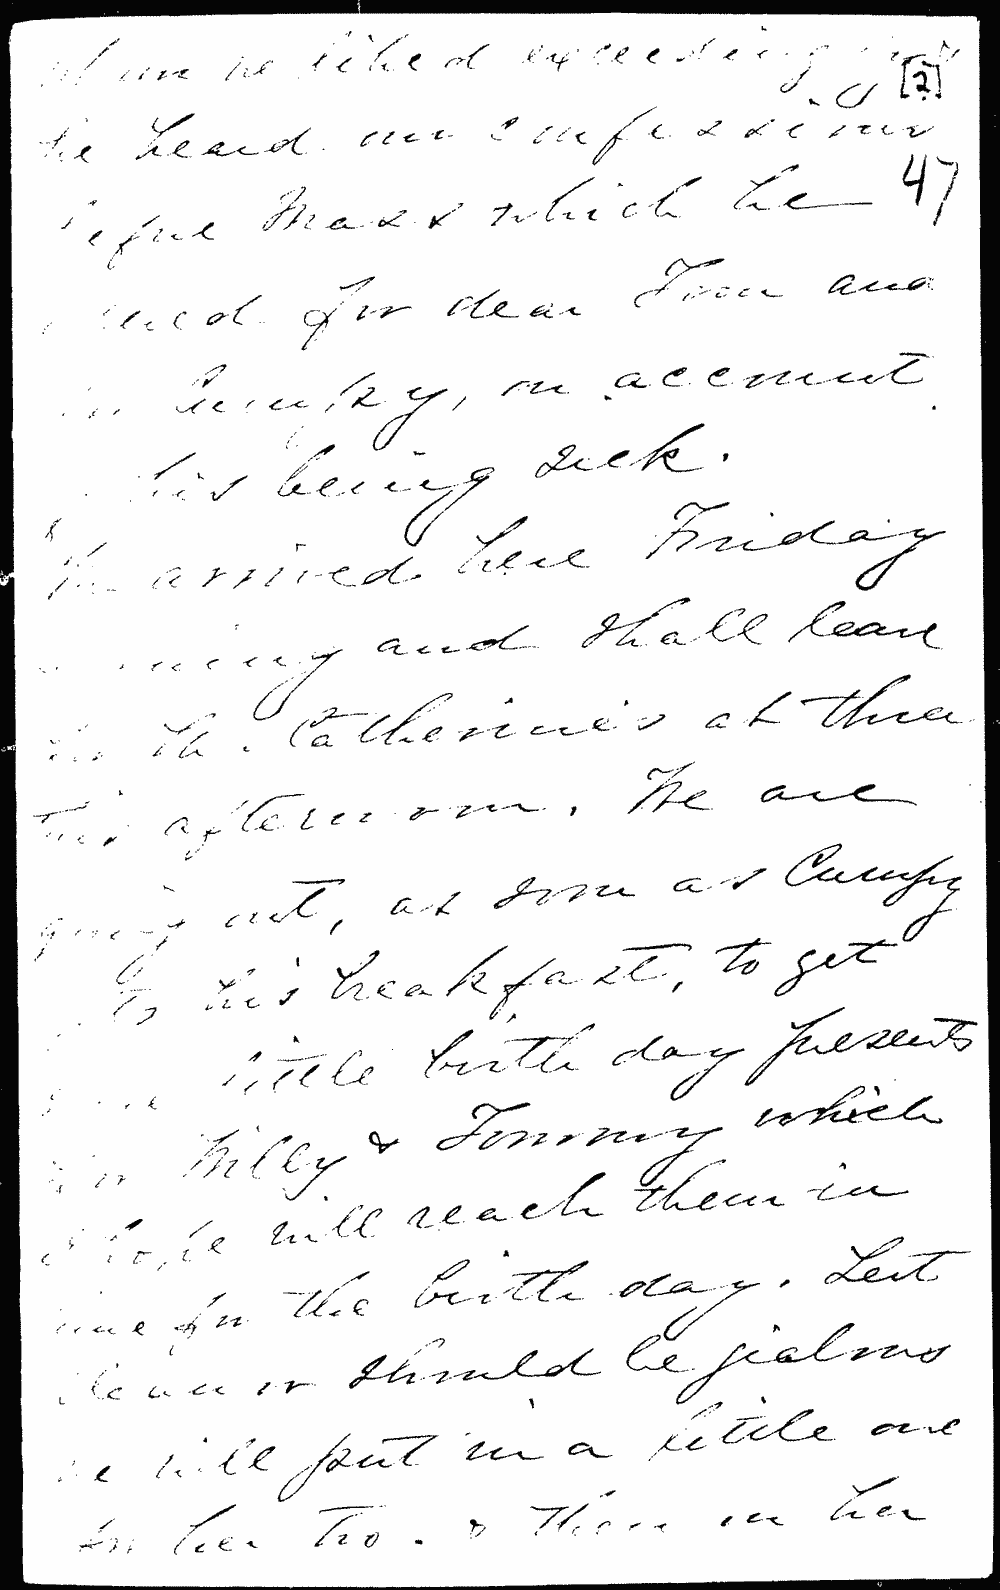 whom we liked exceedingly
[2]
He heard our confessions
47
before Mass which he
offered for dear Tom and
Cumpy, on account
his being sick.
We arrived here Friday
morning and shall leave
for St. Catherine's at three
this afternoon. We are
going out, as soon as Cumpy
gets his breakfast, to get
some little birth day presents
for Willy & Tommy which
I hope will reach them in
time for the birth day. Lest
Eleanor should be jealous
we will put in a little one
for her too. & then in her